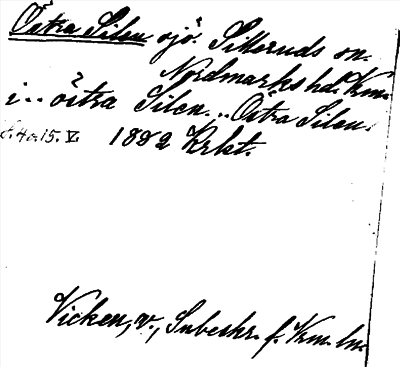 Östra Silen sjö. Silleruds sn.
Nordmarks hd. Vrm.
i.. östra Silen. .. Östra Silen.
S. 4 o. 15. V. 1882 Krkt.
Vicken, v., Inbeskr. f. Vrm. ln.